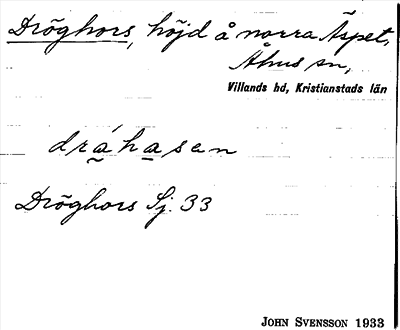 Dröghors, höjd å norra Äspet,
Åhus sn,
Villands hd, Kristianstads län
dráhasen
Dröghors Sj. 33
JOHN SVENSSON 1933